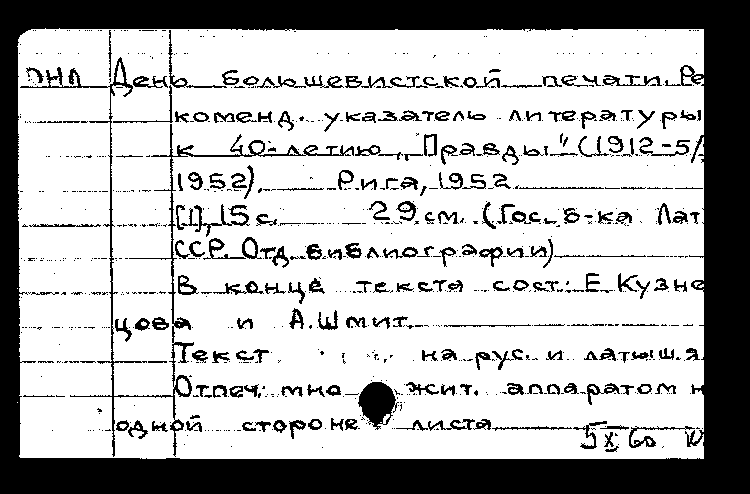 ПНЛ День большевистской печати. Ре
коменд. указатель литературы
к 40-летию „Правды" (1912-5/
1952). Рига, 1952.
[1], 15 с. 29 см. (Гос. б-ка Лат
ССР. Отд. библиографии)
В конце текста сост: Е. Кузне
цова и А. Шмит.
Текст на рус. и латыш. я
Отпеч: мно жит. аппаратом н
одной стороне листа
5 X 60